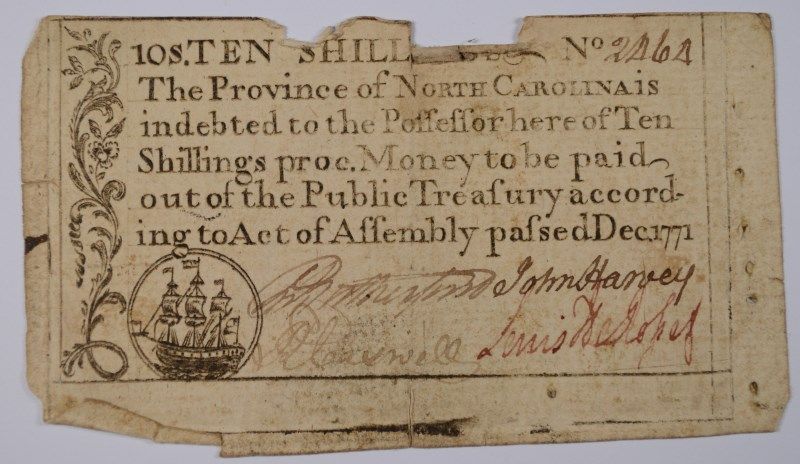 10S. TEN SHILL No 2464
The Province of NORTH CAROLINA is
indebted to the Poſſeſſor here of Ten
Shillings proc. Money to be paid
out of the Public Treaſury accord-
ing to Act of Aſſembly paſſed Dec. 1771
Rutherfurd John Harvey
R Caswell Lewis DeRosset